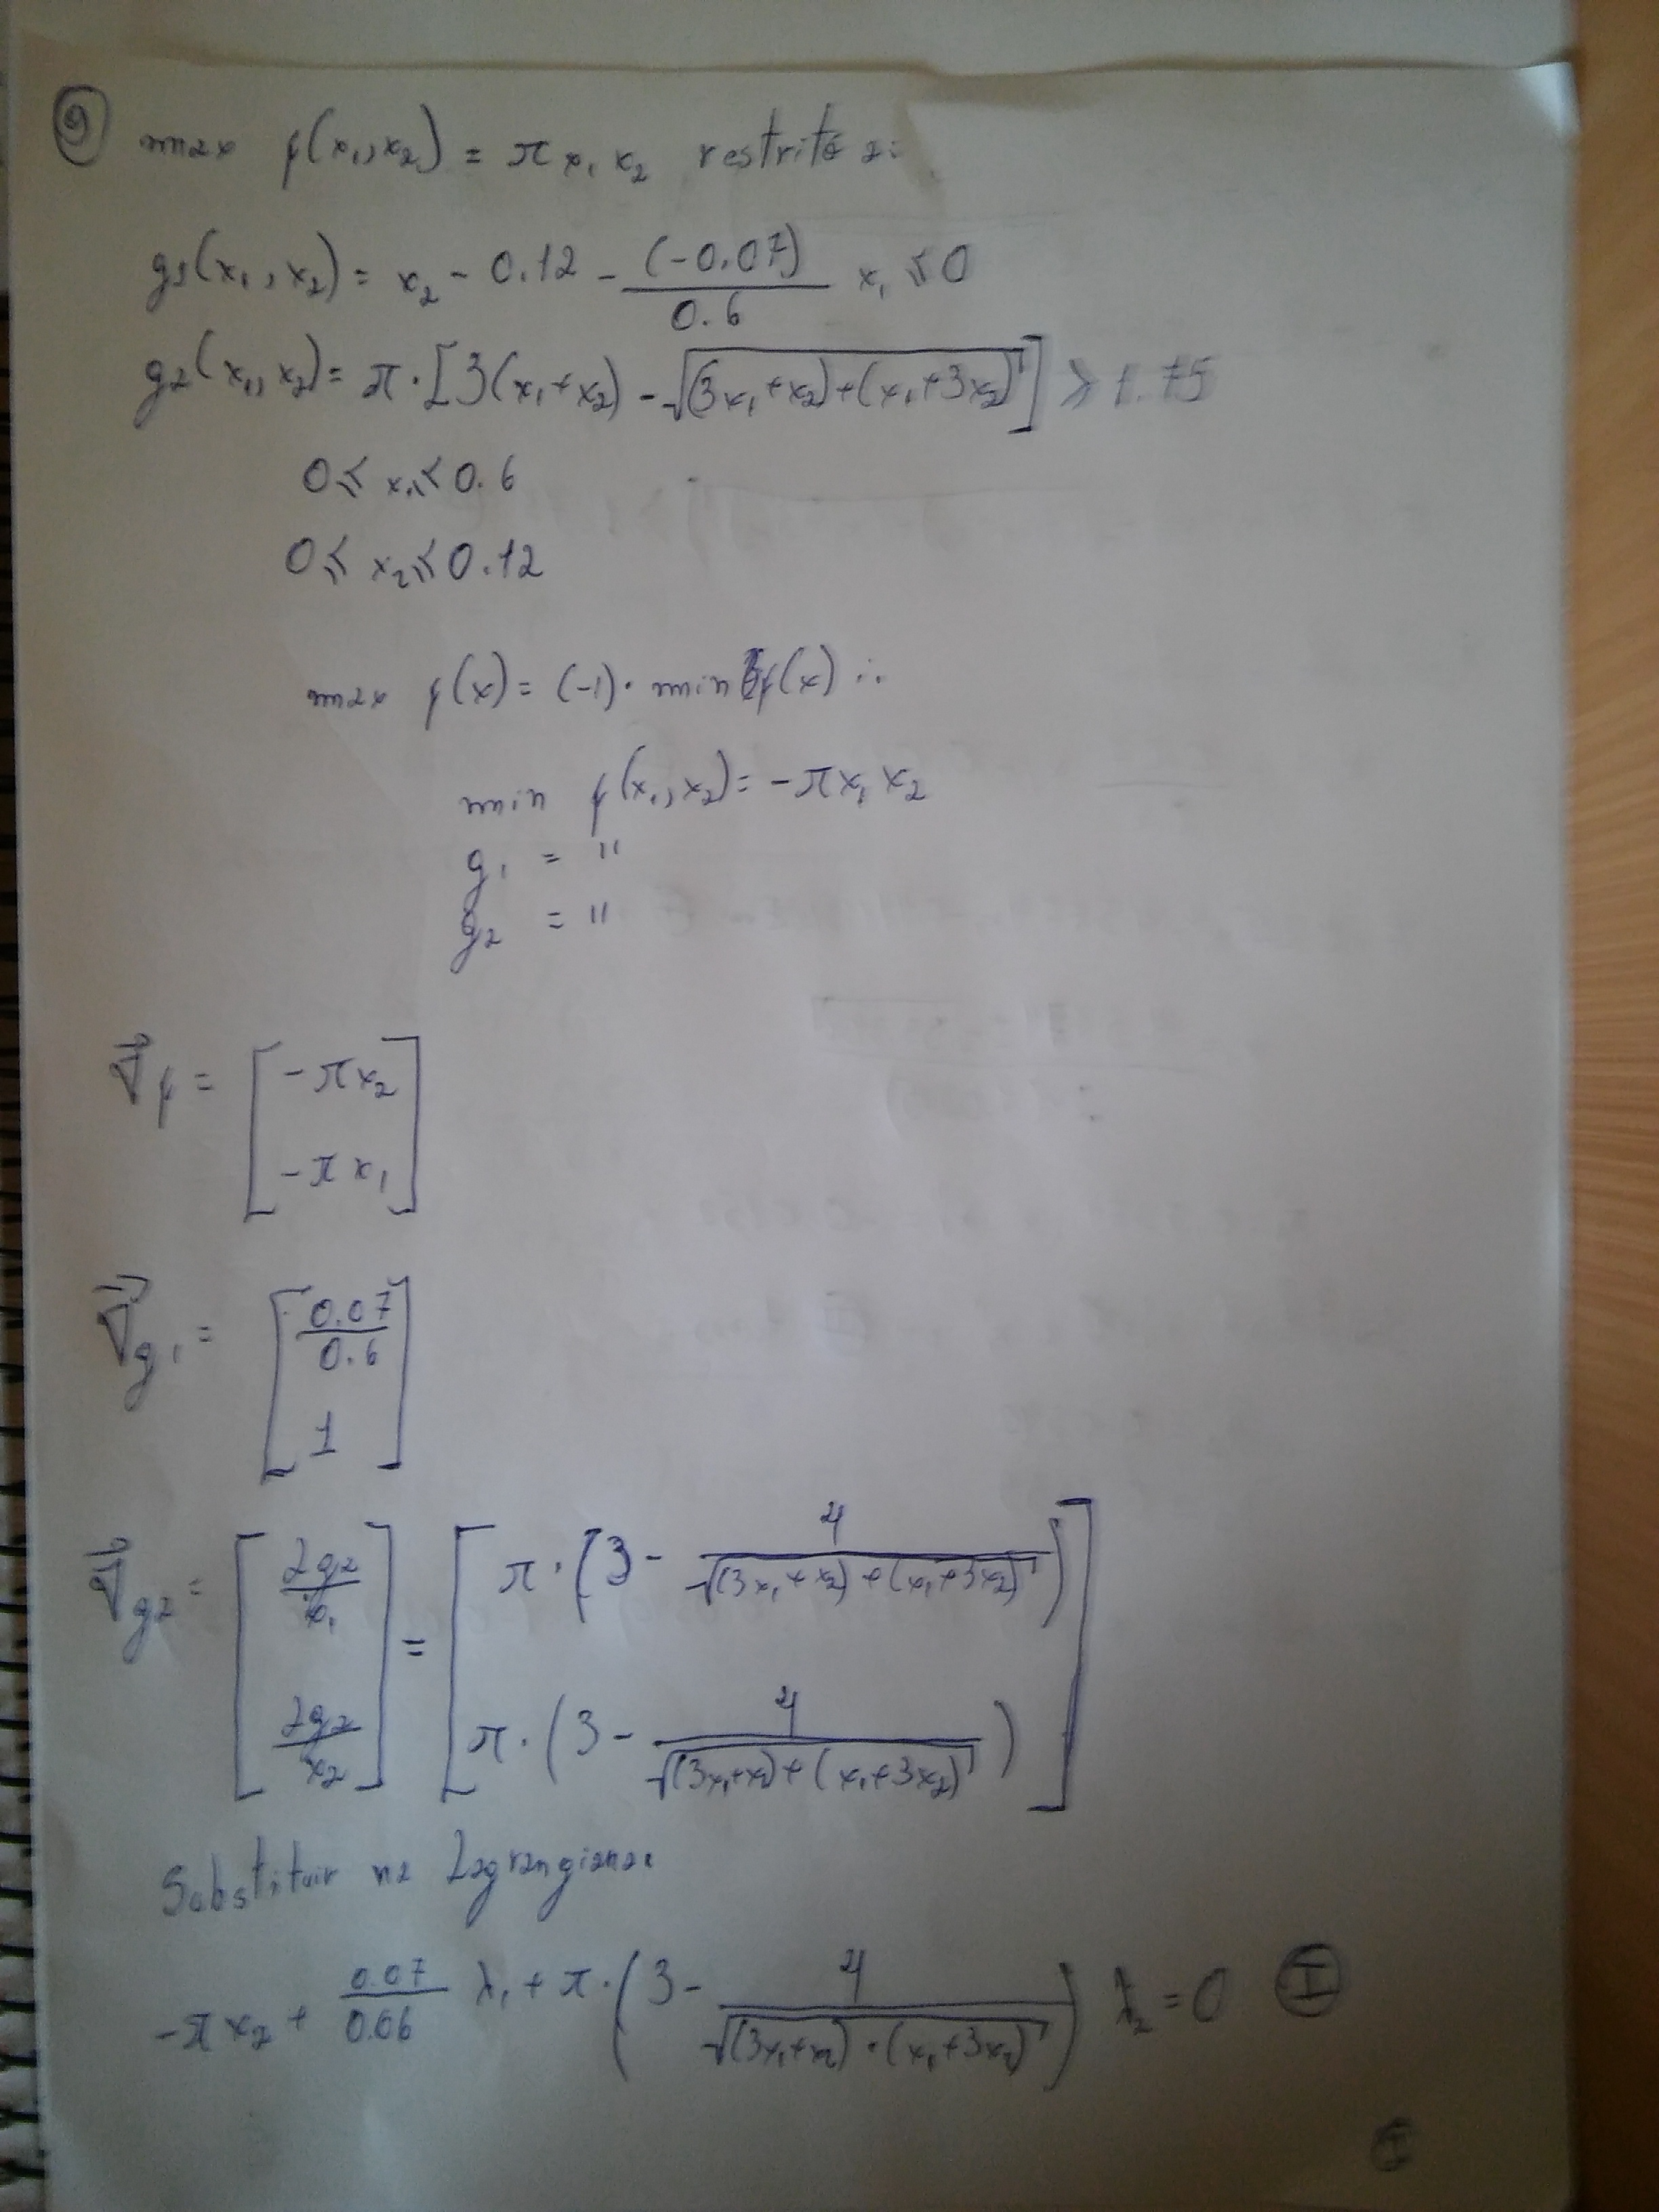 9 max f(x₁,x₂) = π x₁ x₂ restrito a:
g₁(x₁,x₂) = x₂ - 0.12 - (-0.07)/0.6 x₁ ≤ 0
g₂(x₁,x₂) = π·[3(x₁+x₂) - √((3x₁+x₂)+(x₁+3x₂))] ≥ 1.75
0 ≤ x₁ ≤ 0.6
0 ≤ x₂ ≤ 0.12
max f(x) = (-1)· min f(x) ∴
min f(x₁,x₂) = -π x₁ x₂
g₁ = "
g₂ = "
∇f = [-π x₂
-π x₁]
∇g₁ = [0.07/0.6
1]
∇g₂ = [∂g₂/x₁ ∂g₂/x₂] = [π·(3 - 4/√((3x₁+x₂)+(x₁+3x₂)))
π·(3 - 4/√((3x₁+x₂)+(x₁+3x₂)))]
Substituir na Lagrangiana.
-π x₂ + 0.07/0.06 λ₁ + π·(3 - 4/√((3x₁+x₂)·(x₁+3x₂))) λ₂ = 0 I